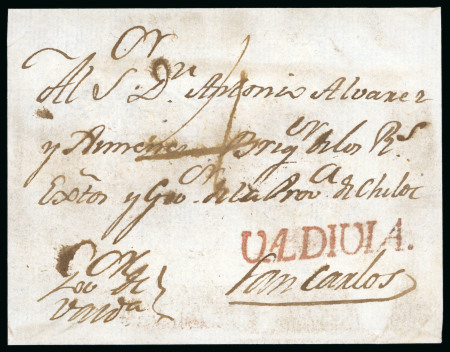 Al S.or D.n Antonio Alvarez
y Ximenez Brig.or de los R.s
Exttos y Gov.or de la Prov.a de Chiloe
VALDIVIA.
San Carlos
Gov.or de
Vald.a